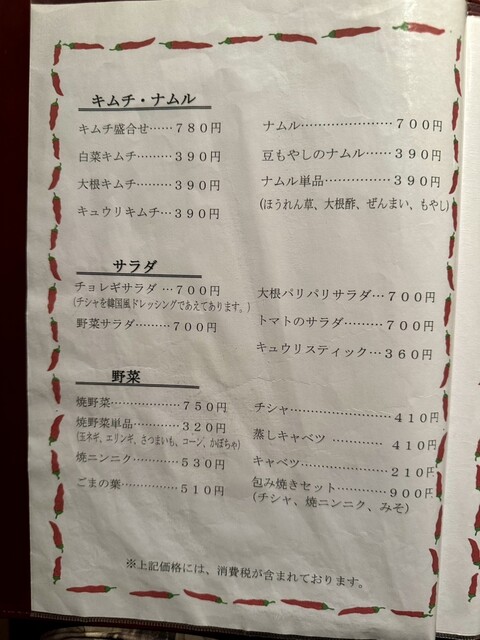 キムチ・ナムル
キムチ盛合せ……７８０円
白菜キムチ………３９０円
大根キムチ………３９０円
キュウリキムチ…３９０円
ナムル………………７００円
豆もやしのナムル……３９０円
ナムル単品……………３９０円
(ほうれん草、大根酢、ぜんまい、もやし)
サラダ
チョレギサラダ …７００円
(チシャを韓国風ドレッシングであえてあります。)
野菜サラダ………７００円
大根パリパリサラダ…７００円
トマトのサラダ………７００円
キュウリスティック…３６０円
野菜
焼野菜……………７５０円
焼野菜単品………３２０円
(玉ネギ、エリンギ、さつまいも、コーン、かぼちゃ)
焼ニンニク………５３０円
ごまの葉…………５１０円
チシャ………………４１０円
蒸しキャベツ ………４１０円
キャベツ……………２１０円
包み焼きセット………９００円
(チシャ、焼ニンニク、みそ)
※上記価格には、消費税が含まれております。